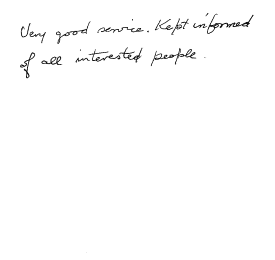 Very good service. Kept informed
of all interested people.